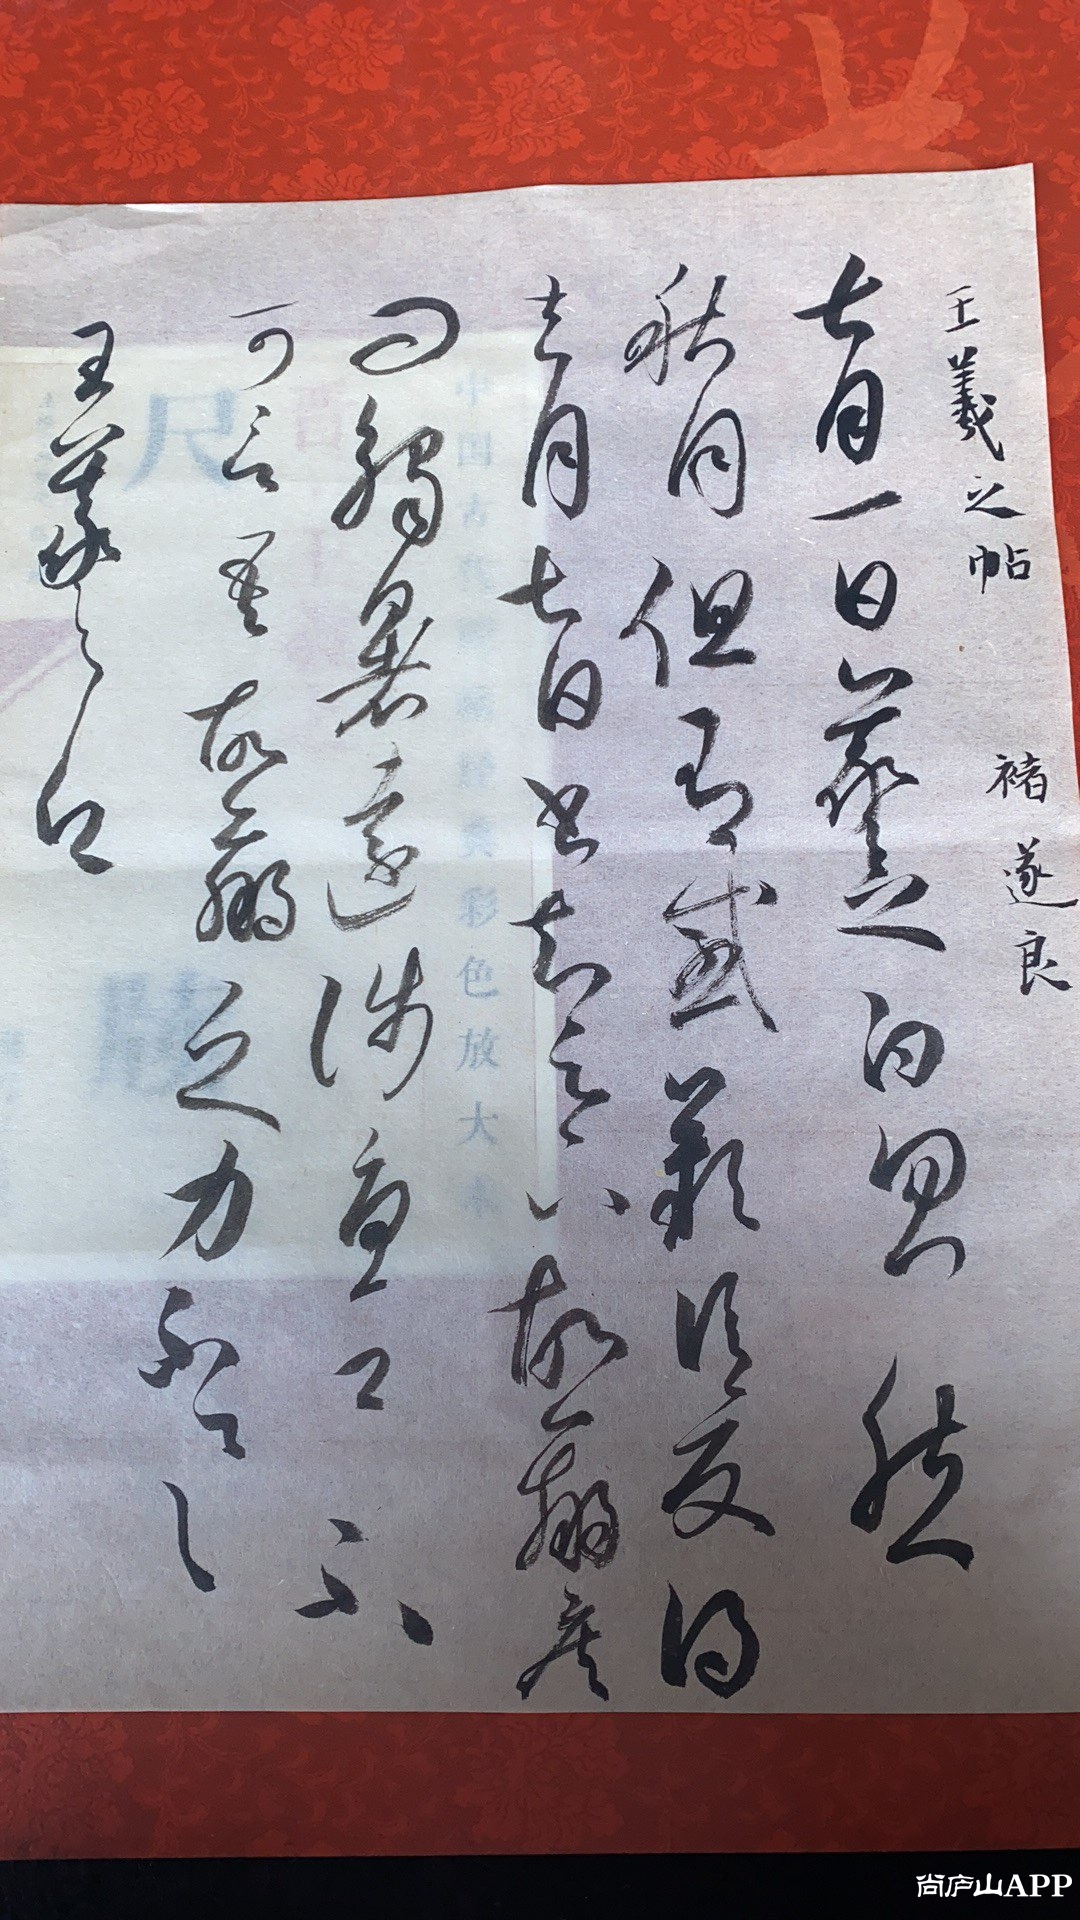 王羲之帖 褚遂良
七月一日羲之白忽然
秋月但有感歎信反得
去月七日書知足下故羸疾
問觸暑遠涉憂卿不
可言吾故羸乏力不
王羲之白
中国古代 彩色放大本
尺牍
尚庐山APP